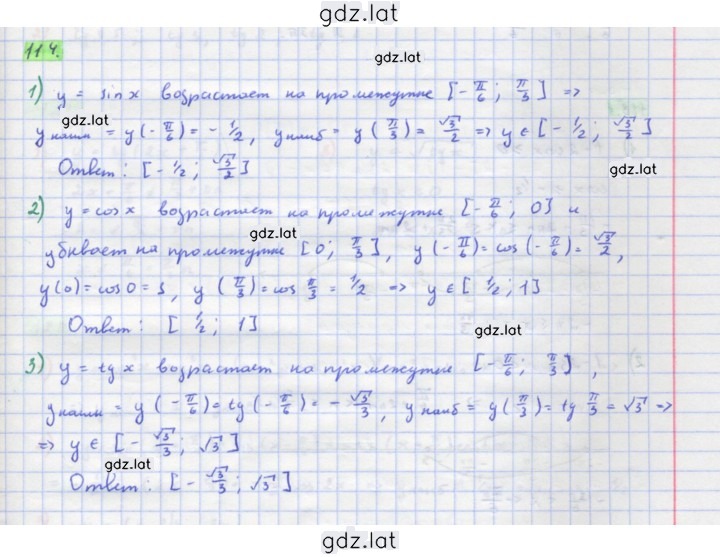 gdz.lat
114.
gdz.lat
1) y = sin x возрастает на промежутке [-π/6; π/3] =>
gdz.lat
yнаим = y(-π/6) = -1/2, yнаиб = y(π/3) = √3/2 => y ∈ [-1/2; √3/2]
Ответ: [-1/2; √3/2]
gdz.lat
2) y = cos x возрастает на промежутке [-π/6; 0] и
gdz.lat
убывает на промежутке [0; π/3], y(-π/6) = cos(-π/6) = √3/2,
y(0) = cos 0 = 1, y(π/3) = cos π/3 = 1/2 => y ∈ [1/2; 1]
Ответ: [1/2; 1]
gdz.lat
3) y = tg x возрастает на промежутке [-π/6; π/3],
yнаим = y(-π/6) = tg(-π/6) = -√3/3, yнаиб = y(π/3) = tg π/3 = √3 =>
=> y ∈ [-√3/3; √3]
gdz.lat
Ответ: [-√3/3; √3]
gdz.lat